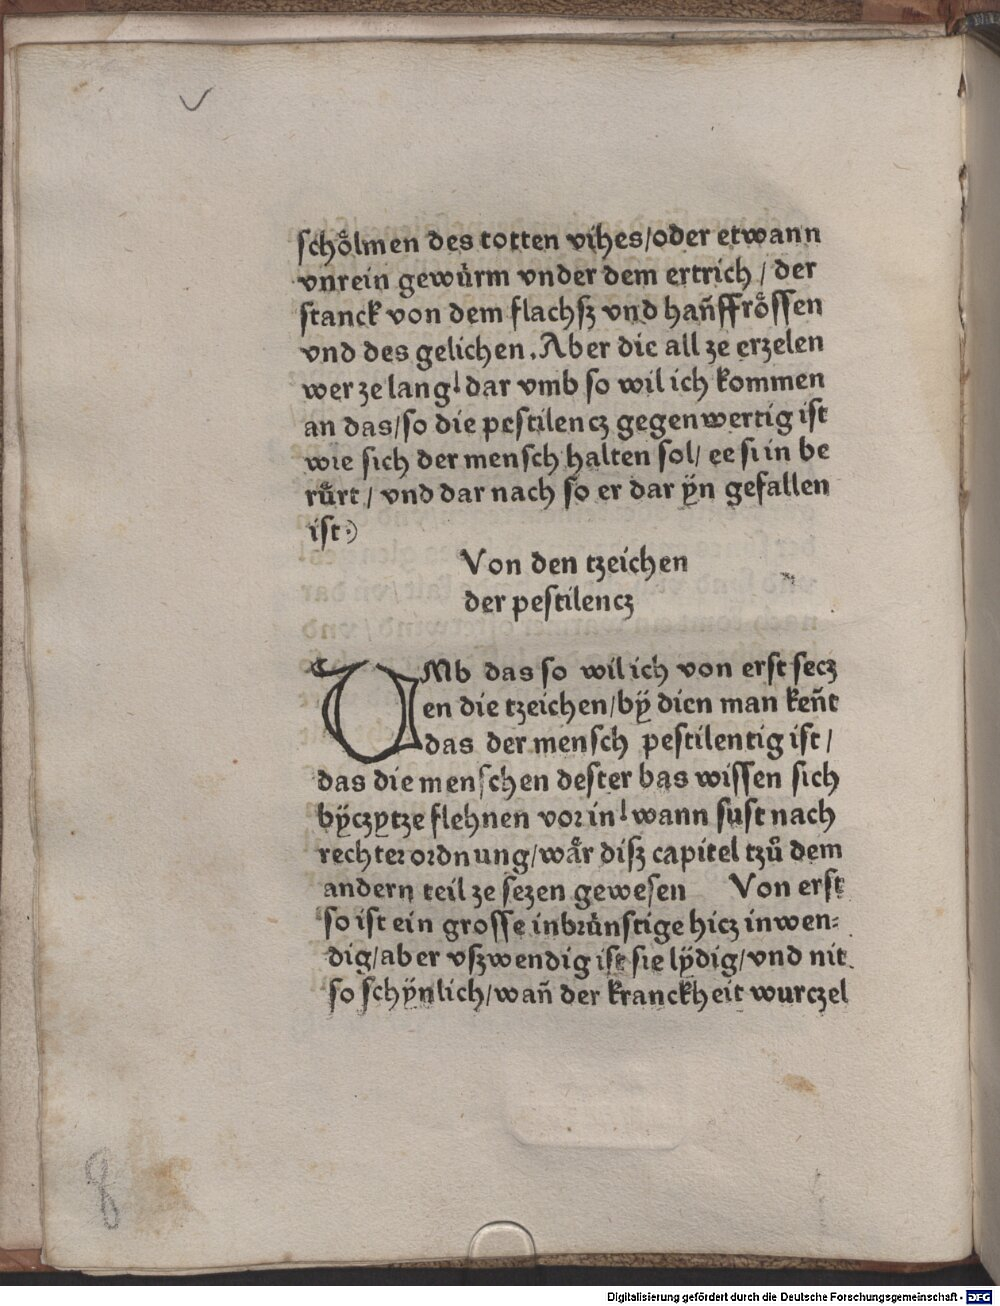 schoͤlmen des totten vihes/oder etwann
vnrein gewuͤrm vnder dem ertrich / der
stanck von dem flachsz vnd han̄ffroͤssen
vnd des gelichen. Aber die all ze erzelen
wer ze lang/ dar vmb so wil ich kommen
an das/so die pestilencz gegenwertig ist
wie sich der mensch halten sol/ ee si in be
ruͤrt / vnd dar nach so er dar ÿn gefallen
ist.
Von den tzeichen
der pestilencz
VMb das so wil ich von erst secz
en die tzeichen/bÿ dien man ken̄t
das der mensch pestilentig ist /
das die menschen dester bas wissen sich
bÿczytze flehnen vor in/ wann sust nach
rechter ordnung/waͤr disz capitel tzuͦ dem
andern teil ze sezen gewesen Von erst
so ist ein grosse inbruͤnstige hicz inwen=
dig/aber vszwendig ist sie lÿdig/vnd nit
so schÿnlich/wan̄ der kranckheit wurczel
8
Digitalisierung gefördert durch die Deutsche Forschungsgemeinschaft - DFG